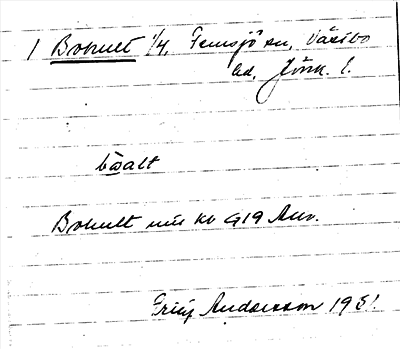 1 Bohult 1/4, Femsjö sn, Västbo
hd, Jönk. l.
bωalt
Bohult mtl kb G19 Anv.
Fritz Andersson 1951.